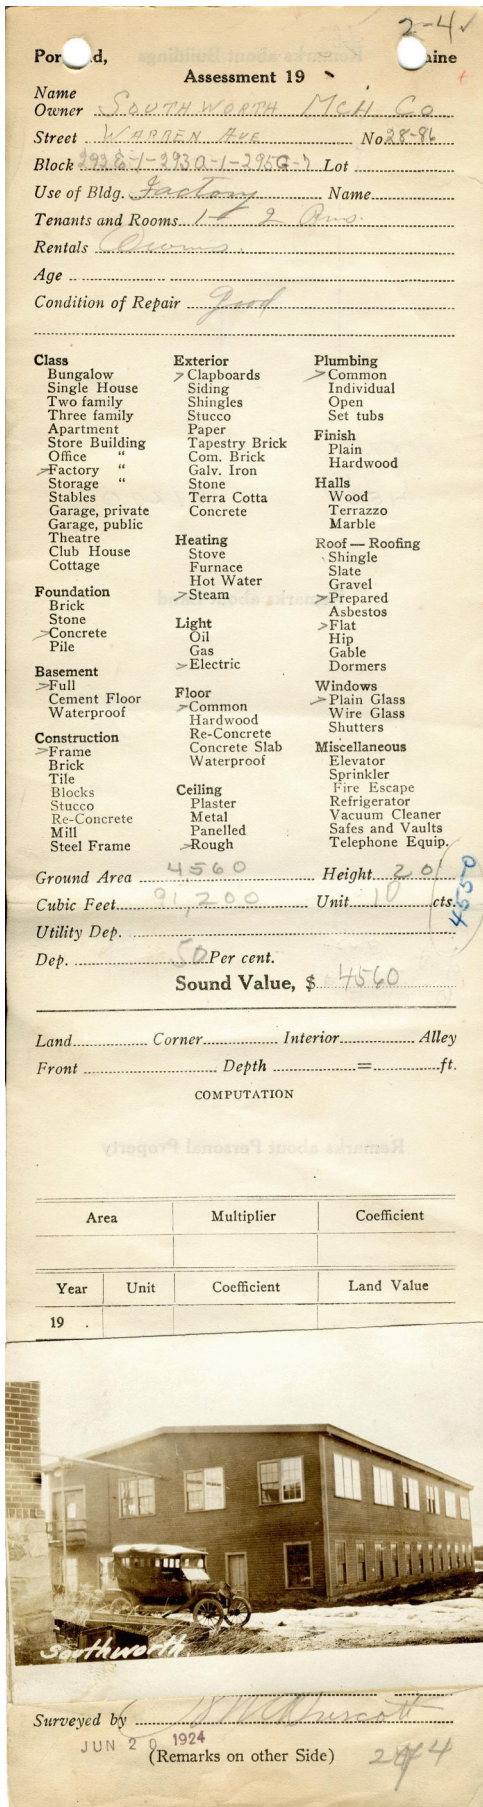 2-4 ✓
Por d, aine
Assessment 19
Name
Owner SOUTHWORTH MCH CO
Street WARREN AVE No 28-86
Block 292E-1-293A-1-295G-7 Lot
Use of Bldg. Factory Name
Tenants and Rooms 1- 2 Rms.
Rentals Owns.
Age
Condition of Repair Good
Class
Bungalow
Single House
Two family
Three family
Apartment
Store Building
Office "
> Factory "
Storage "
Stables
Garage, private
Garage, public
Theatre
Club House
Cottage
Foundation
Brick
Stone
> Concrete
Pile
Basement
> Full
Cement Floor
Waterproof
Construction
> Frame
Brick
Tile
Blocks
Stucco
Re-Concrete
Mill
Steel Frame
Exterior
> Clapboards
Siding
Shingles
Stucco
Paper
Tapestry Brick
Com. Brick
Galv. Iron
Stone
Terra Cotta
Concrete
Heating
Stove
Furnace
Hot Water
> Steam
Light
Oil
Gas
> Electric
Floor
> Common
Hardwood
Re-Concrete
Concrete Slab
Waterproof
Ceiling
Plaster
Metal
Panelled
> Rough
Plumbing
> Common
Individual
Open
Set tubs
Finish
Plain
Hardwood
Halls
Wood
Terrazzo
Marble
Roof — Roofing
Shingle
Slate
Gravel
> Prepared
Asbestos
> Flat
Hip
Gable
Dormers
Windows
> Plain Glass
Wire Glass
Shutters
Miscellaneous
Elevator
Sprinkler
Fire Escape
Refrigerator
Vacuum Cleaner
Safes and Vaults
Telephone Equip.
Ground Area 4560 Height 20'
Cubic Feet 91,200 Unit 10 cts.
4550
Utility Dep.
Dep. 50 Per cent.
Sound Value, $ 4560
Land Corner Interior Alley
Front Depth = ft.
COMPUTATION
Area Multiplier Coefficient
Year Unit Coefficient Land Value
19 .
Southworth
Surveyed by
JUN 20 1924
(Remarks on other Side)